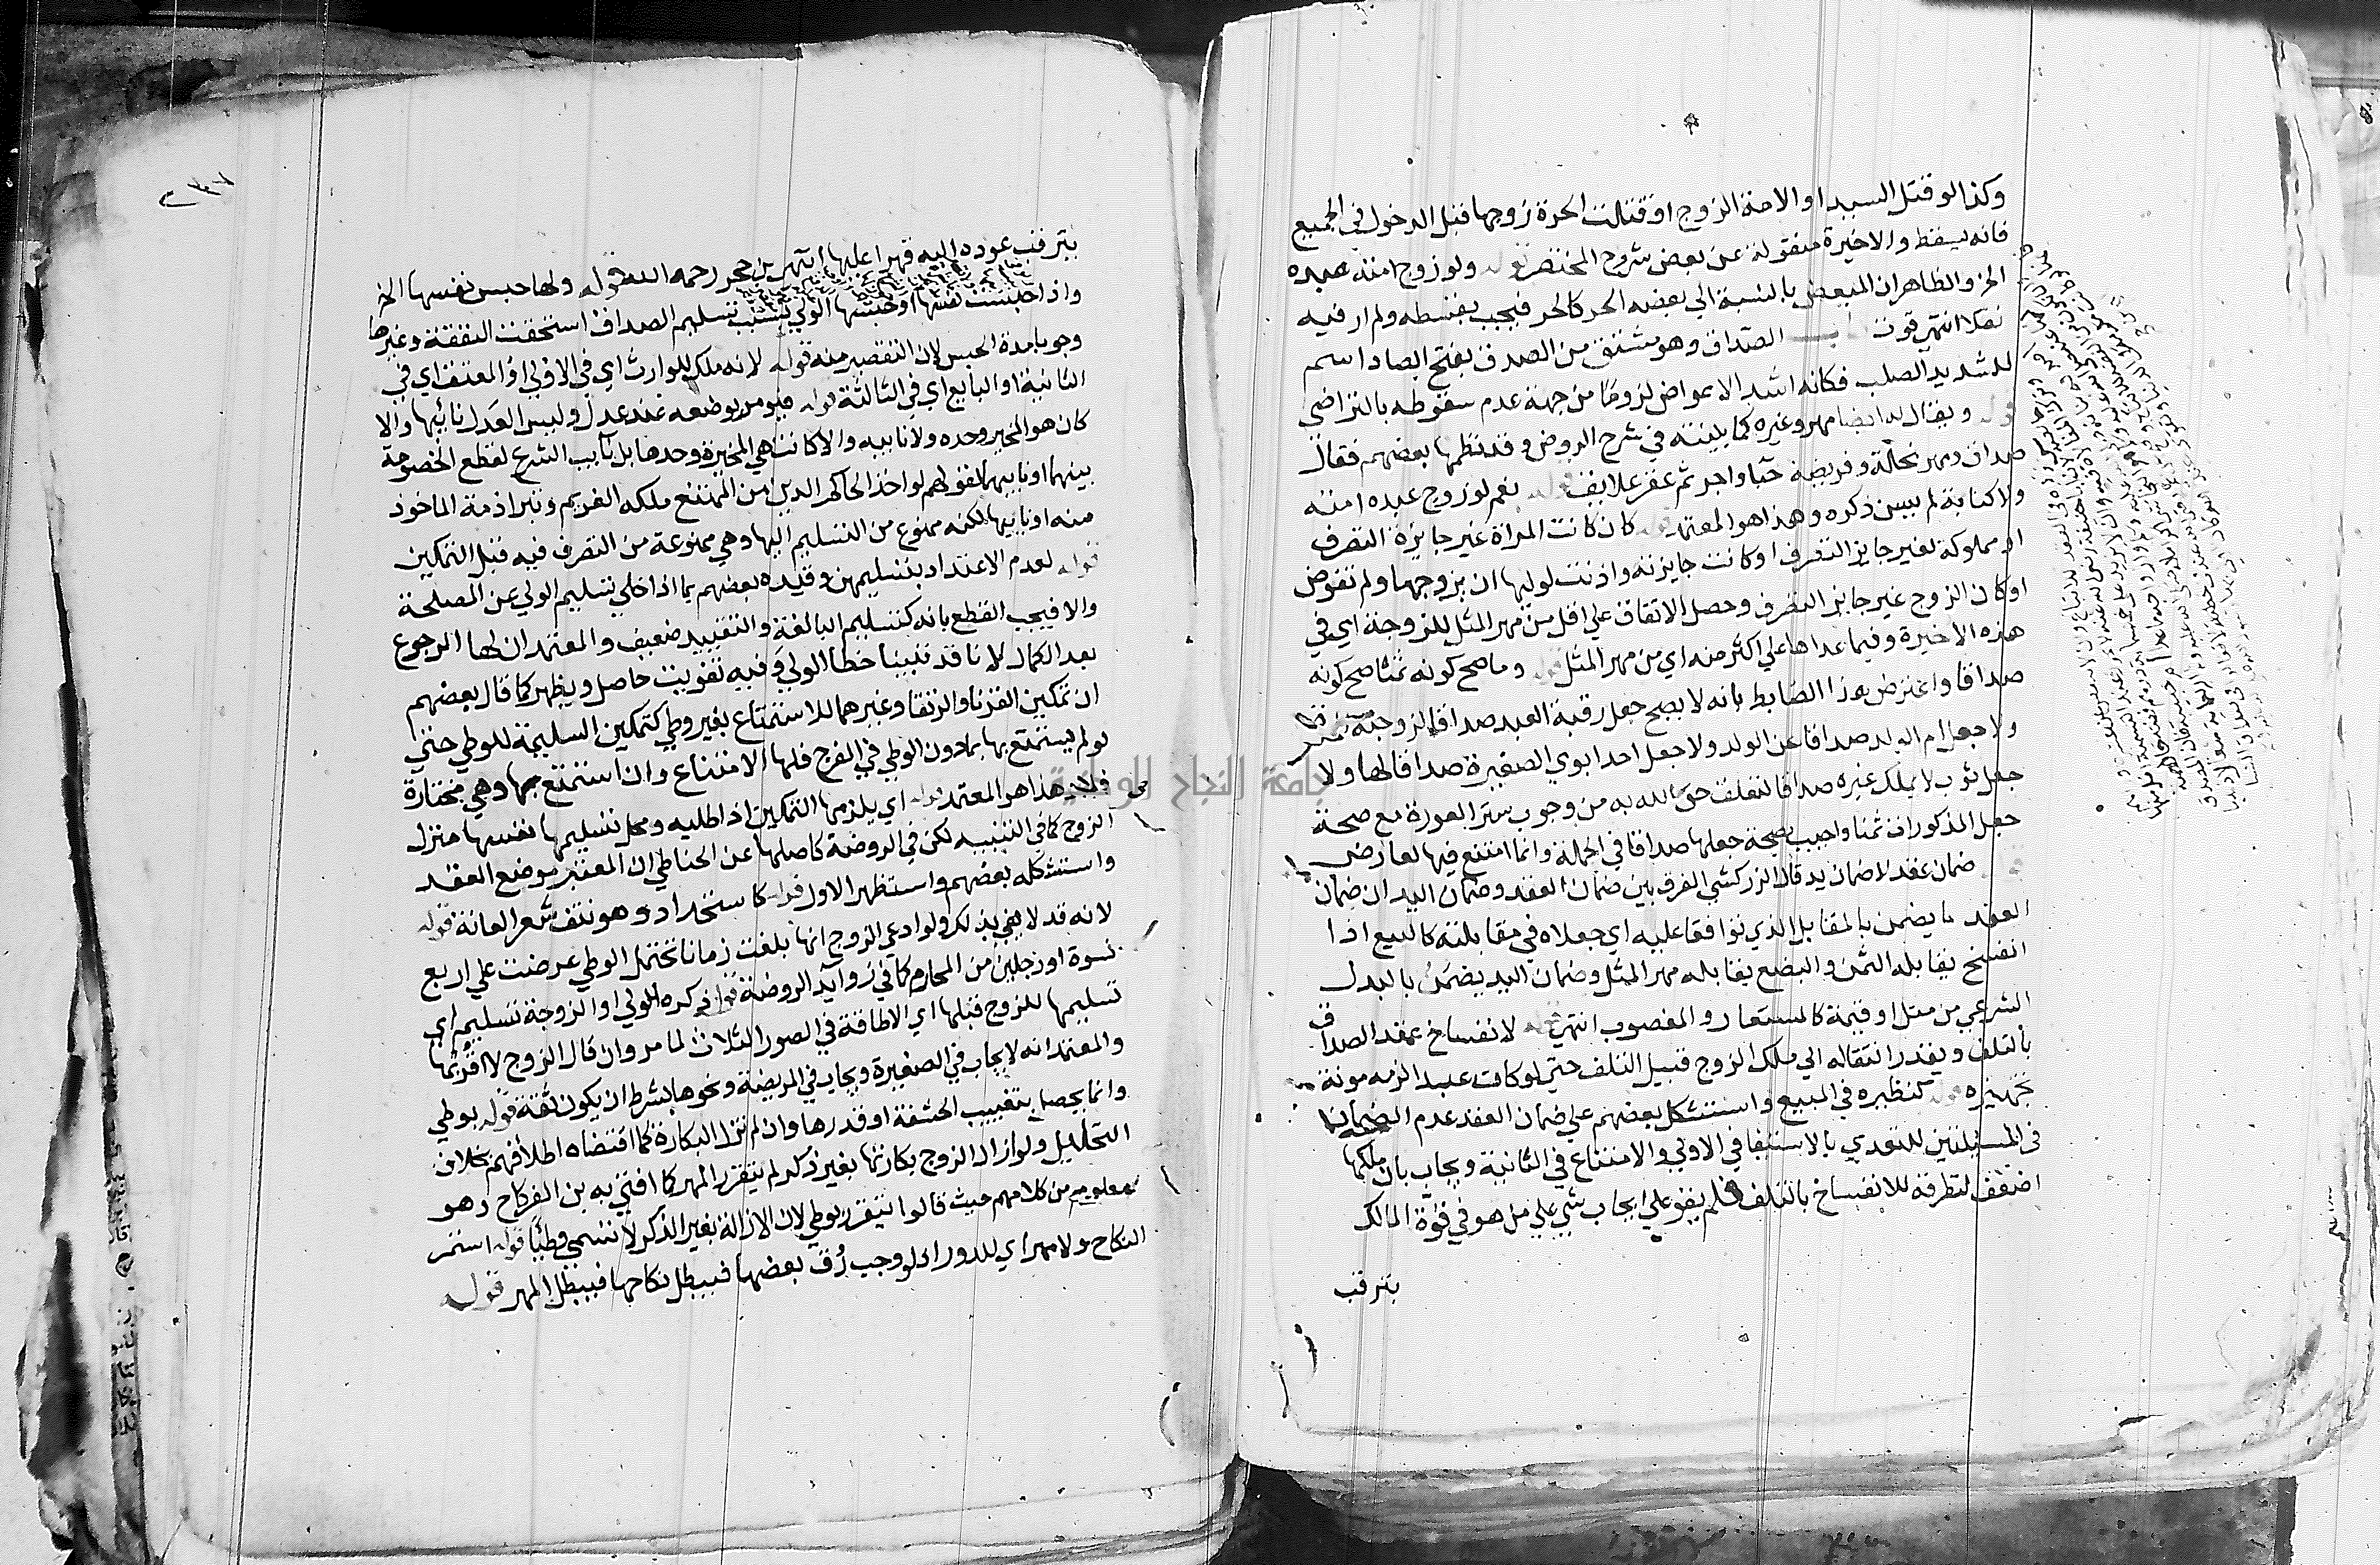 وكذا لو قتل السيد او الامة الزوج او قتلت الحرة زوجها قبل الدخول في الجميع
فانه يسقط والاخيرة منقولة عن بعض شروح المختصر قوله ولو زوج امته عبده
الخ والظاهر ان المبعض بالنسبة الي بعضه الحر كالحر فيجب بقسطه ولم ار فيه
نقلا انتهي قوت باب الصداق وهو مشتق من الصدق بفتح الصاد اسم
للشديد الصلب فكانه اشد الاعواض لزوما من جهة عدم سقوطه بالتراضي
قوله ويقال له ايضا مهر وغيره كما بينته في شرح الروض وقد نظمها بعضهم فقال
صداق ومهر نحلة وفريضة حبا واجر ثم عقر علايق قوله نعم لو زوج عبده امته
ولا كتابة لم يسن ذكره وهذا هو المعتمد قوله كان كانت المراة غير جايزة التصرف
او مملوكة لغير جايز التصرف او كانت جايزته واذنت لوليها ان يزوجها ولم تفوض
او كان الزوج غير جايز التصرف وحصل الاتفاق علي اقل من مهر المثل للزوجة اي في
هذه الاخيرة وفيما عداها علي اكثر منه اي من مهر المثل قوله وما صح كونه ثمنا صح كونه
صداقا واعترض هذا الضابط بانه لا يصح جعل رقبة العبد صداقا لزوجته
ولا جعل ام الولد صداقا عن الولد ولا جعل احد ابوي الصغيرة صداقا لها ولا
جعل ثوب لا يملك غيره صداقا لتعلق حق الله به من وجوب ستر العورة مع صحة
جعل المذكورات ثمنا واجيب بصحة جعلها صداقا في الجملة وانما امتنع فيها لعارض
ضمان عقد لا ضمان يد قال الزركشي الفرق بين ضمان العقد وضمان اليد ان ضمان
العقد ما يضمن بالمقابل الذي توافقا عليه اي جعلاه في مقابلته كالبيع اذا
انفسخ يقابله الثمن والبضع يقابله مهر المثل وضمان اليد يضمن بالبدل
الشرعي من مثل او قيمة كالمستعار والمغصوب انتهي قوله لانفساخ عقد الصداق
بالتلف ويقدر انتقاله الي ملك الزوج قبيل التلف حتي لو كان عبدا لزمه مونة
تجهيزه قوله كنظيره في المبيع واستشكل بعضهم علي ضمان العقد عدم الضمان
في المسيلتين للتعدي بالاستيفا في الاولي والامتناع في الثانية ويجاب بان ملكها
اضعف لتطرقه للانفساخ بالتلف فلم يقو علي ايجاب شي علي من هو في قوة المالك
بترقب
بترقب عوده اليه قهرا عليها انتهي بن حجر رحمه الله قوله ولها حبس نفسها الخ
واذا حبست نفسها او حبسها الولي بسبب تسليم الصداق استحقت النفقة وغيرها
وجوبا مدة الحبس لان التقصير منه قوله لانه ملك للوارث اي في الاولي او المعتق اي في
الثانية او البايع اي في الثالثة قوله فيومر بوضعه عند عدل وليس العدل نائبها والا
كان هو المخير وحده ولا نايبه والا كانت هي المخيرة وحدها بل نايب الشرع لقطع الخصومة
بينهما او نايبهما لقولهم لو اخذ الحاكم الدين من الممتنع ملكه الغريم وتبرا ذمة الماخوذ
منه او نايبها لكنه ممنوع من التسليم اليها وهي ممنوعة من التصرف فيه قبل التمكين
قوله لعدم الاعتداد بتسليمهن وقيده بعضهم بما اذا خلي تسليم الولي عن المصلحة
والا فيجب القطع بانه كتسليم البالغة والتقييد ضعيف والمعتمد ان لها الرجوع
بعد الكمال لانا قد تبينا خطا الولي وفيه تفويت حاصل ويظهر كما قال بعضهم
ان تمكين القرنا والرتقا وغيرهما للاستمتاع بغير وطي كتمكين السليمة للوطي حتي
لو لم يستمتع بها بما دون الوطي في الفرج فلها الامتناع وان استمتع بها وهي مختارة
فلا هذا هو المعتمد قوله اي يلزمها التمكين اذا طلبه ومحل تسليمها نفسها منزل
الزوج كما في التنبيه لكن في الروضة كاصلها عن الحناطي ان المعتبر موضع العقد
واستشكله بعضهم واستظهر الاول قوله كاستحداد وهو نتف شعر العانة قوله
لانه قد لا يفي بذلك ولو ادعي الزوج انها بلغت زمانا تحتمل الوطي عرضت علي اربع
نسوة او رجلين من المحارم كما في زوايد الروضة قوله ذكره للولي او الزوجة تسليم اي
تسليمها للزوج قبلها اي الاطاقة في الصور الثلاث لما مر وان قال الزوج لا اقربها
والمعتمد انه لا يجاب في الصغيرة ويجاب في المريضة ونحوها بشرط ان يكون ثقة قوله بوطي
وانما يحصل بتغييب الحشفة او قدرها وان لم تزل البكارة كما اقتضاه اطلاقهم بخلاف
التحليل ولو ازال الزوج بكارتها بغير ذكر لم يتقرر المهر كما افتي به بن الفركاح وهو
معلوم من كلامهم حيث قالوا يتقرر بوطي لان الازالة بغير الذكر لا تسمي وطئا قوله استمر
النكاح ولا مهر اي للدور اذ لو وجب رق بعضها فيبطل نكاحها فيبطل المهر قوله
جامعة النجاح الوطنية